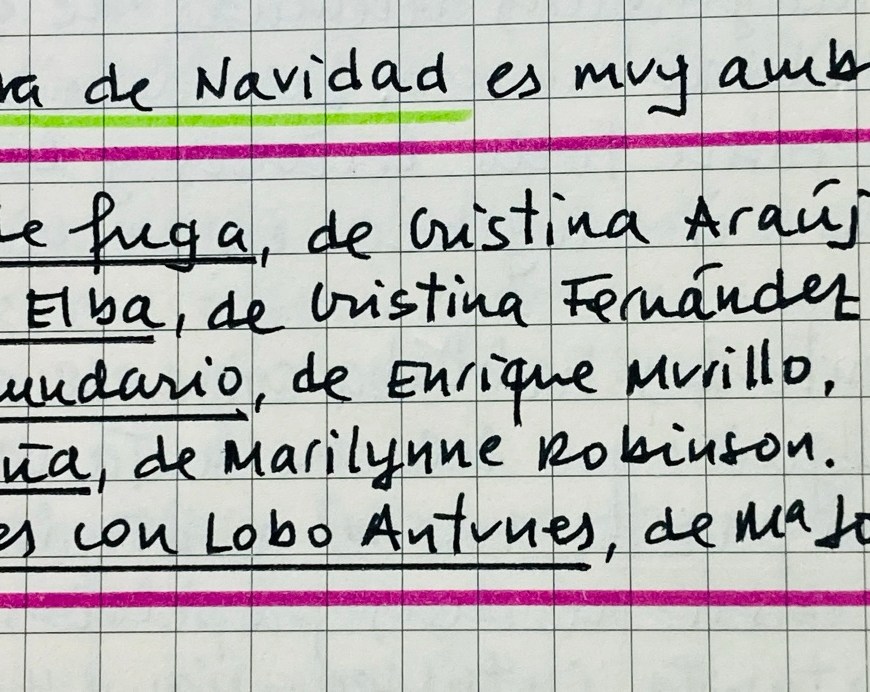 ra de Navidad es muy amb
de fuga, de Cristina Araúj
Elba, de Cristina Fernández
undario, de Enrique Murillo.
ña, de Marilynne Robinson.
es con Lobo Antunes, de Mª Jo